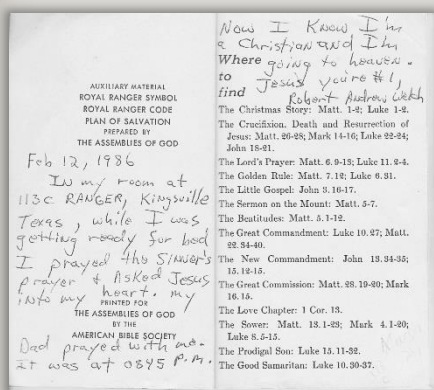 AUXILIARY MATERIAL
ROYAL RANGER SYMBOL
ROYAL RANGER CODE
PLAN OF SALVATION
PREPARED BY
THE ASSEMBLIES OF GOD
Feb 12, 1986
IN my room at
113C RANGER, Kingsville
Texas, while I was
getting ready for bed
I prayed the Sinner's
prayer & Asked Jesus
into my heart. my
PRINTED FOR
THE ASSEMBLIES OF GOD
BY THE
AMERICAN BIBLE SOCIETY
Dad prayed with me.
it was at 0845 P.M.
Now I Know I'm
a Christian and I'm
Where going to heaven.
to Jesus you're #1,
find Robert Andrew Welch
The Christmas Story: Matt. 1-2; Luke 1-2.
The Crucifixion, Death and Resurrection of
Jesus: Matt. 26-28; Mark 14-16; Luke 22-24;
John 18-21.
The Lord's Prayer: Matt. 6.9-13; Luke 11.2-4.
The Golden Rule: Matt. 7.12; Luke 6.31.
The Little Gospel: John 3.16-17.
The Sermon on the Mount: Matt. 5-7.
The Beatitudes: Matt. 5.1-12.
The Great Commandment: Luke 10.27; Matt.
22.34-40.
The New Commandment: John 13.34-35;
15.12-15.
The Great Commission: Matt. 28.19-20; Mark
16.15.
The Love Chapter: 1 Cor. 13.
The Sower: Matt. 13.1-23; Mark 4.1-20;
Luke 8.5-15.
The Prodigal Son: Luke 15.11-32.
The Good Samaritan: Luke 10.30-37.